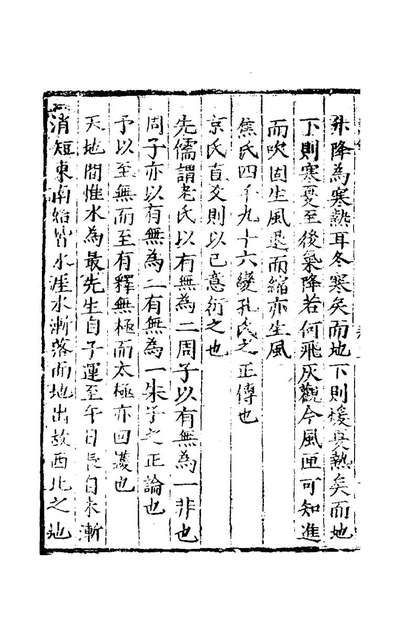 升降為寒熱耳冬寒矣而地下則煖夏熱矣而地
下則寒夏至後氣降若何飛灰觀今風匣可知進
而吹固生風退而縮亦生風
焦氏四千九十六變孔氏之正傳也
京氏直爻則以己意衍之也
先儒謂老氏以有無為二周子以有無為一非也
周子亦以有無為二有無為一朱子之正論也
予以至無而至有釋無極而太極亦回護也
天地間惟水為最先生自子運至午日長自未漸
消短東南始皆水涯水漸落而地出故西北之地